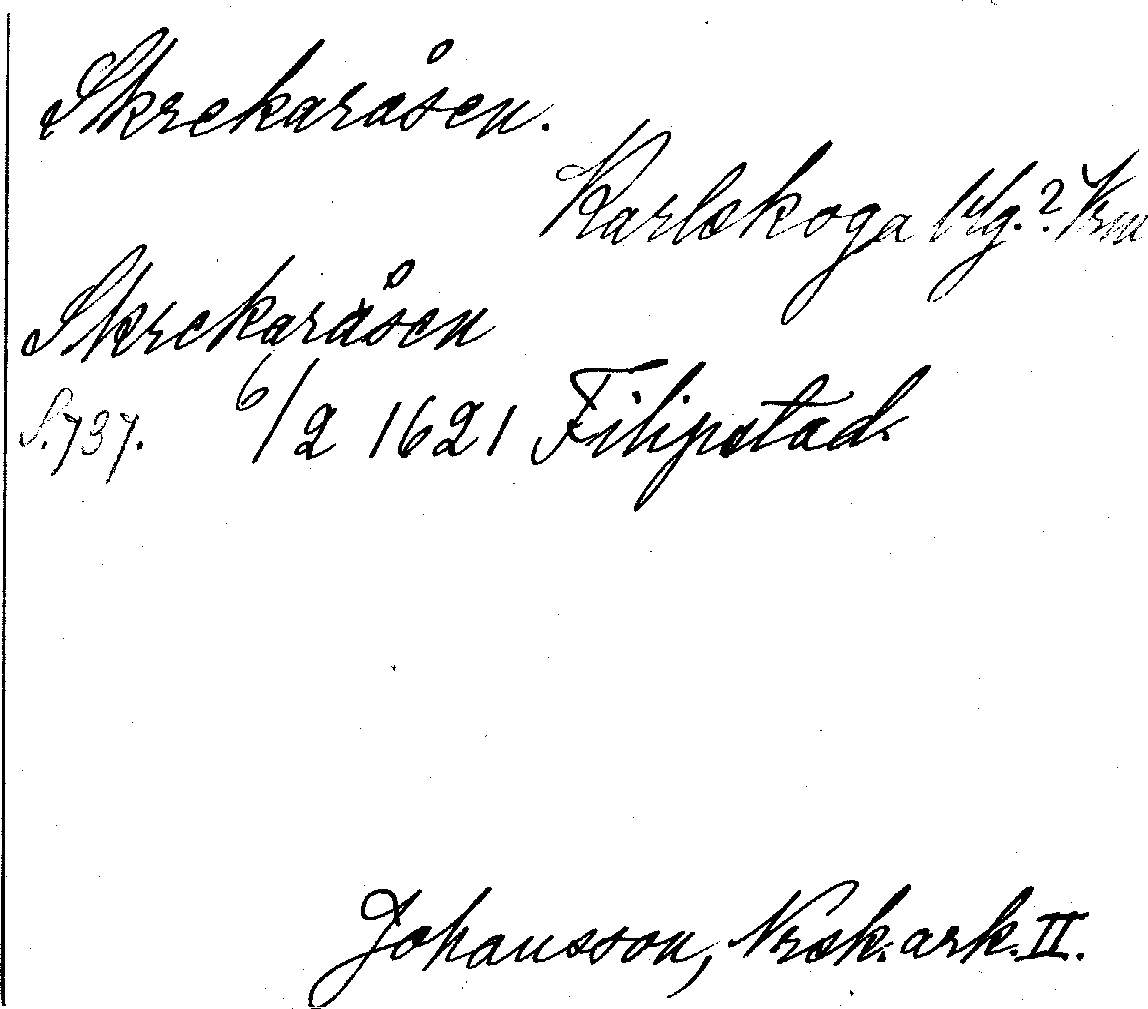 Skrekaråsen.
Karlskoga Hg.? Vrm
Skrekaråsen
S.737. 6/2 1621 Filipstad.
Johansson, Nrsk. ark. II.